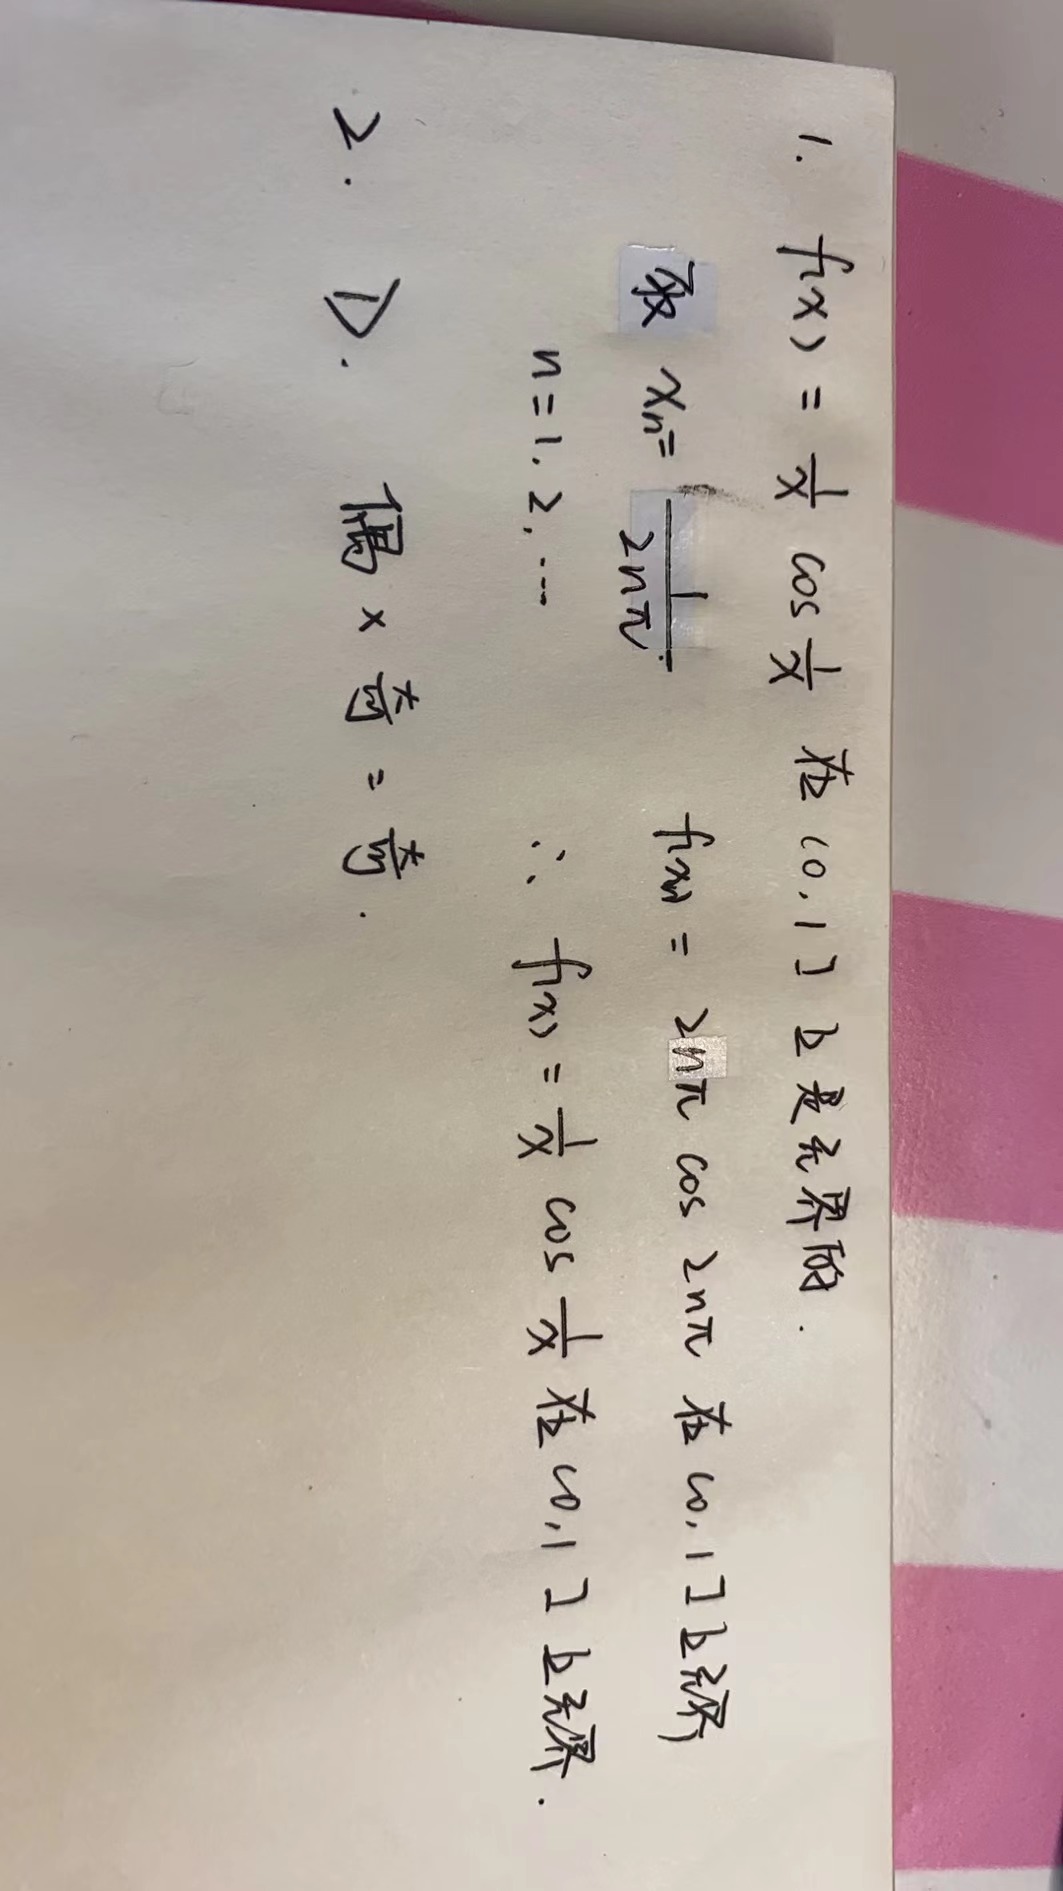 1. f(x) = 1/x cos 1/x 在 (0,1] 上是无界的.
取 xn = 1/2nπ. f(xn) = 2nπ cos 2nπ 在 (0,1] 上无界
n=1,2,… ∴ f(x) = 1/x cos 1/x 在 (0,1] 上无界.
2. ①. 偶 × 奇 = 奇.